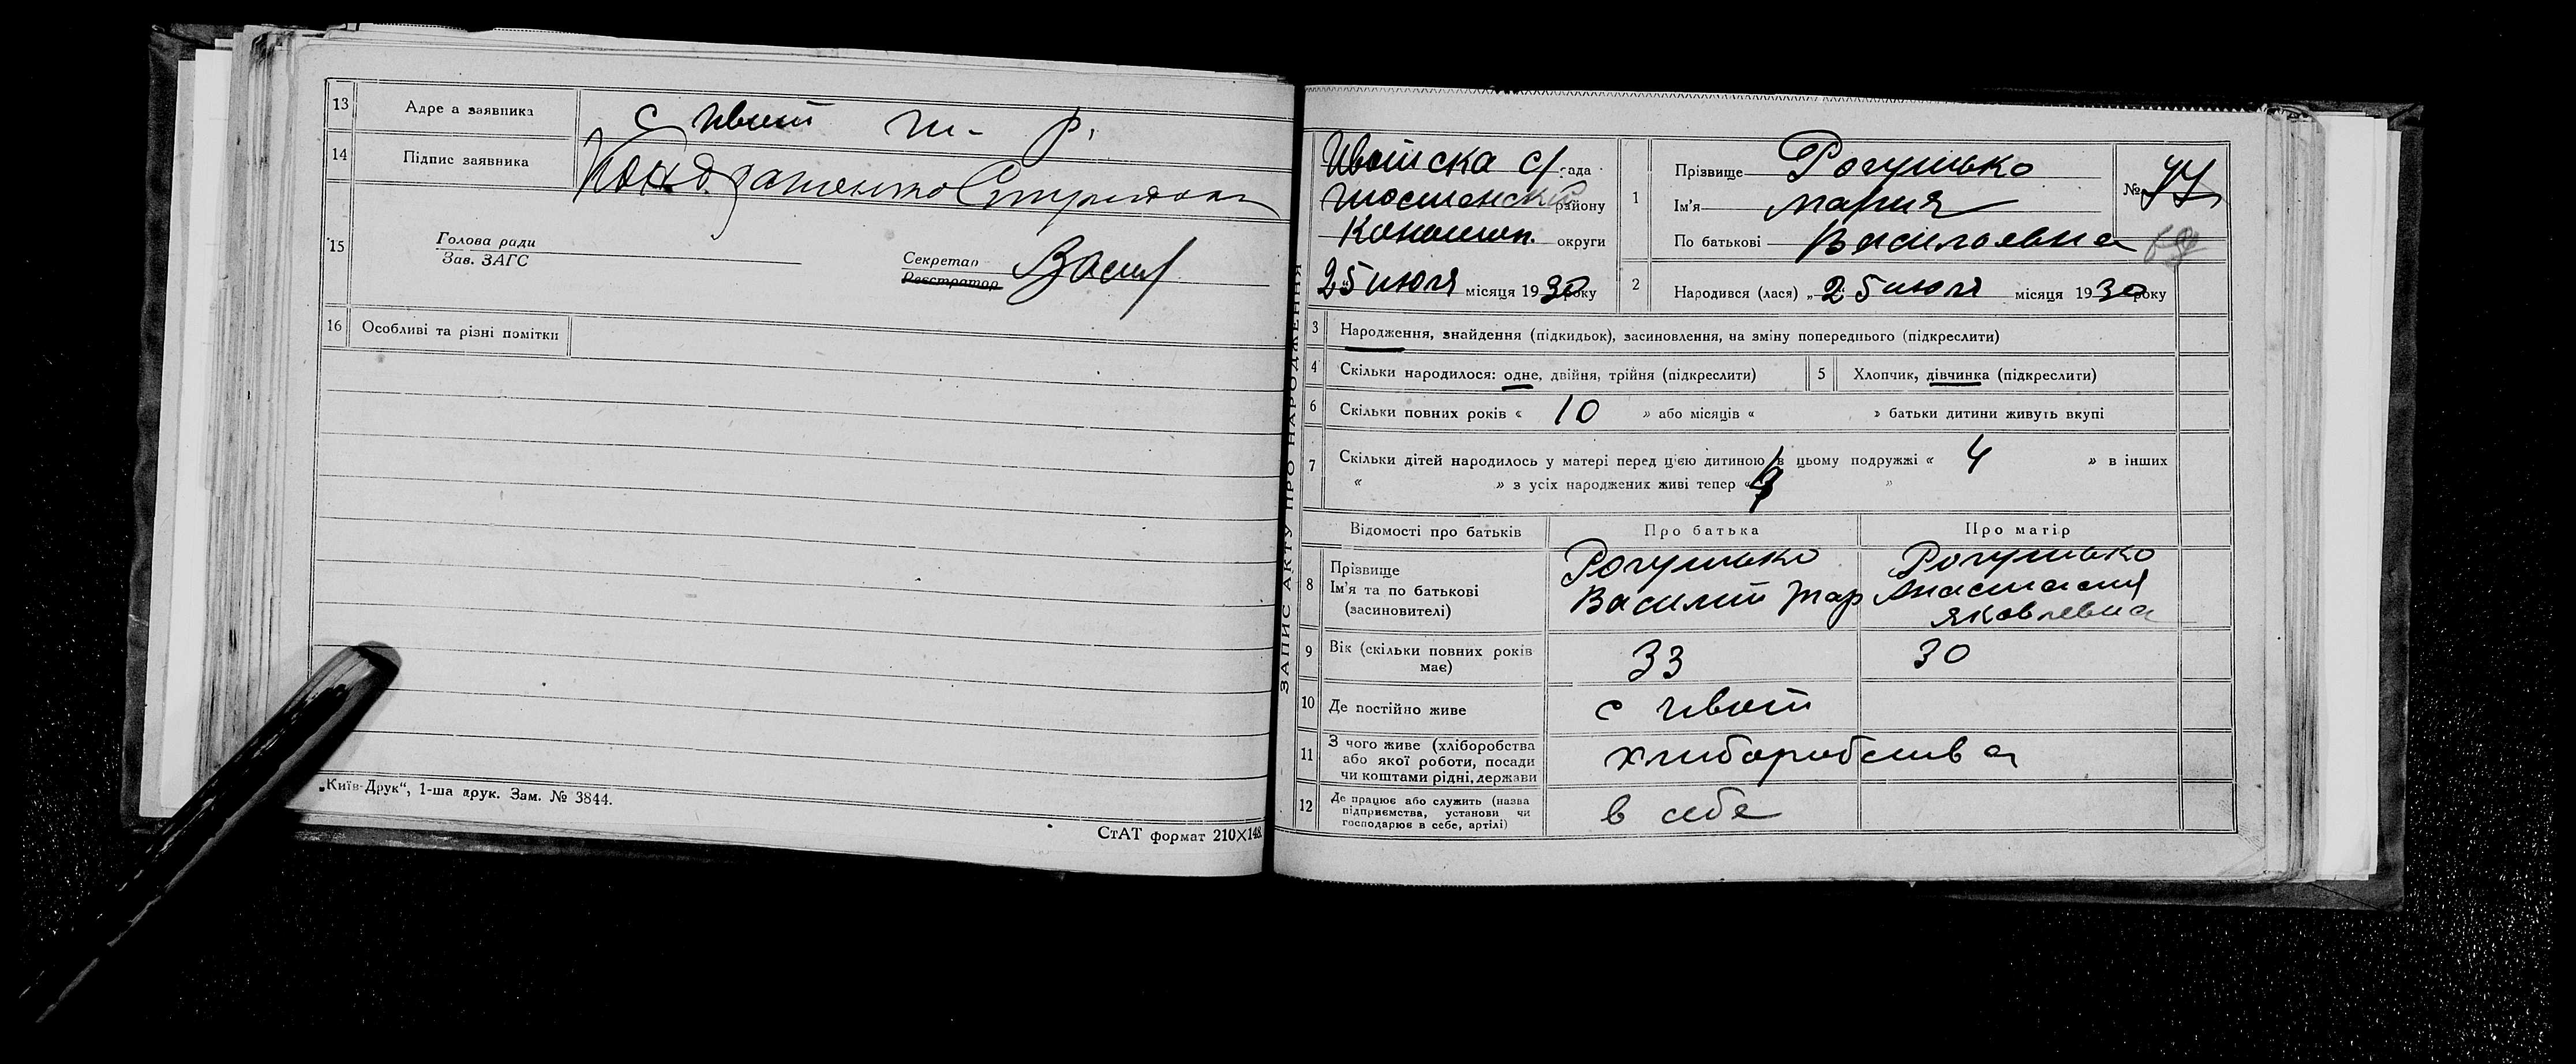 13 Адре а заявника с Ивот ш- р.
14 Підпис заявника
15 Голова ради
Зав. ЗАГС
Секретар
Реєстратор
16 Особливі та різні помітки
„Київ-Друк“, 1-ша друк. Зам. № 3844.
СтАТ формат 210×148.
ЗАПИС АКТУ ПРО НАРОДЖЕННЯ
Ивотска с/рада
району
Конотоп. округи
25 июля місяця 1930 року
1 Прізвище Рогулько
Ім'я Мария
По батькові Васильевна
№
2 Народився (лася) „25 июля місяця 1930 року
3 Народження, знайдення (підкидьок), засиновлення, на зміну попереднього (підкреслити)
4 Скільки народилося: одне, двійня, трійня (підкреслити)
5 Хлопчик, дівчинка (підкреслити)
6 Скільки повних років « 10 » або місяців « » батьки дитини живуть вкупі
7 Скільки дітей народилось у матері перед цією дитиною в цьому подружжі « 4 » в інших
« » з усіх народжених живі тепер « »
Відомості про батьків Про батька Про матір
8 Прізвище
Ім'я та по батькові
(засиновителі)
Рогулько
Василий
Рогулько
Анастасия
Яковлевна
9 Вік (скільки повних років
має)
33
30
10 Де постійно живе
с Ивот
11 З чого живе (хліборобства
або якої роботи, посади
чи коштами рідні, держави
хлиборобства
12 Де працює або служить (назва
підприємства, установи чи
господарює в себе, артілі)
в себе